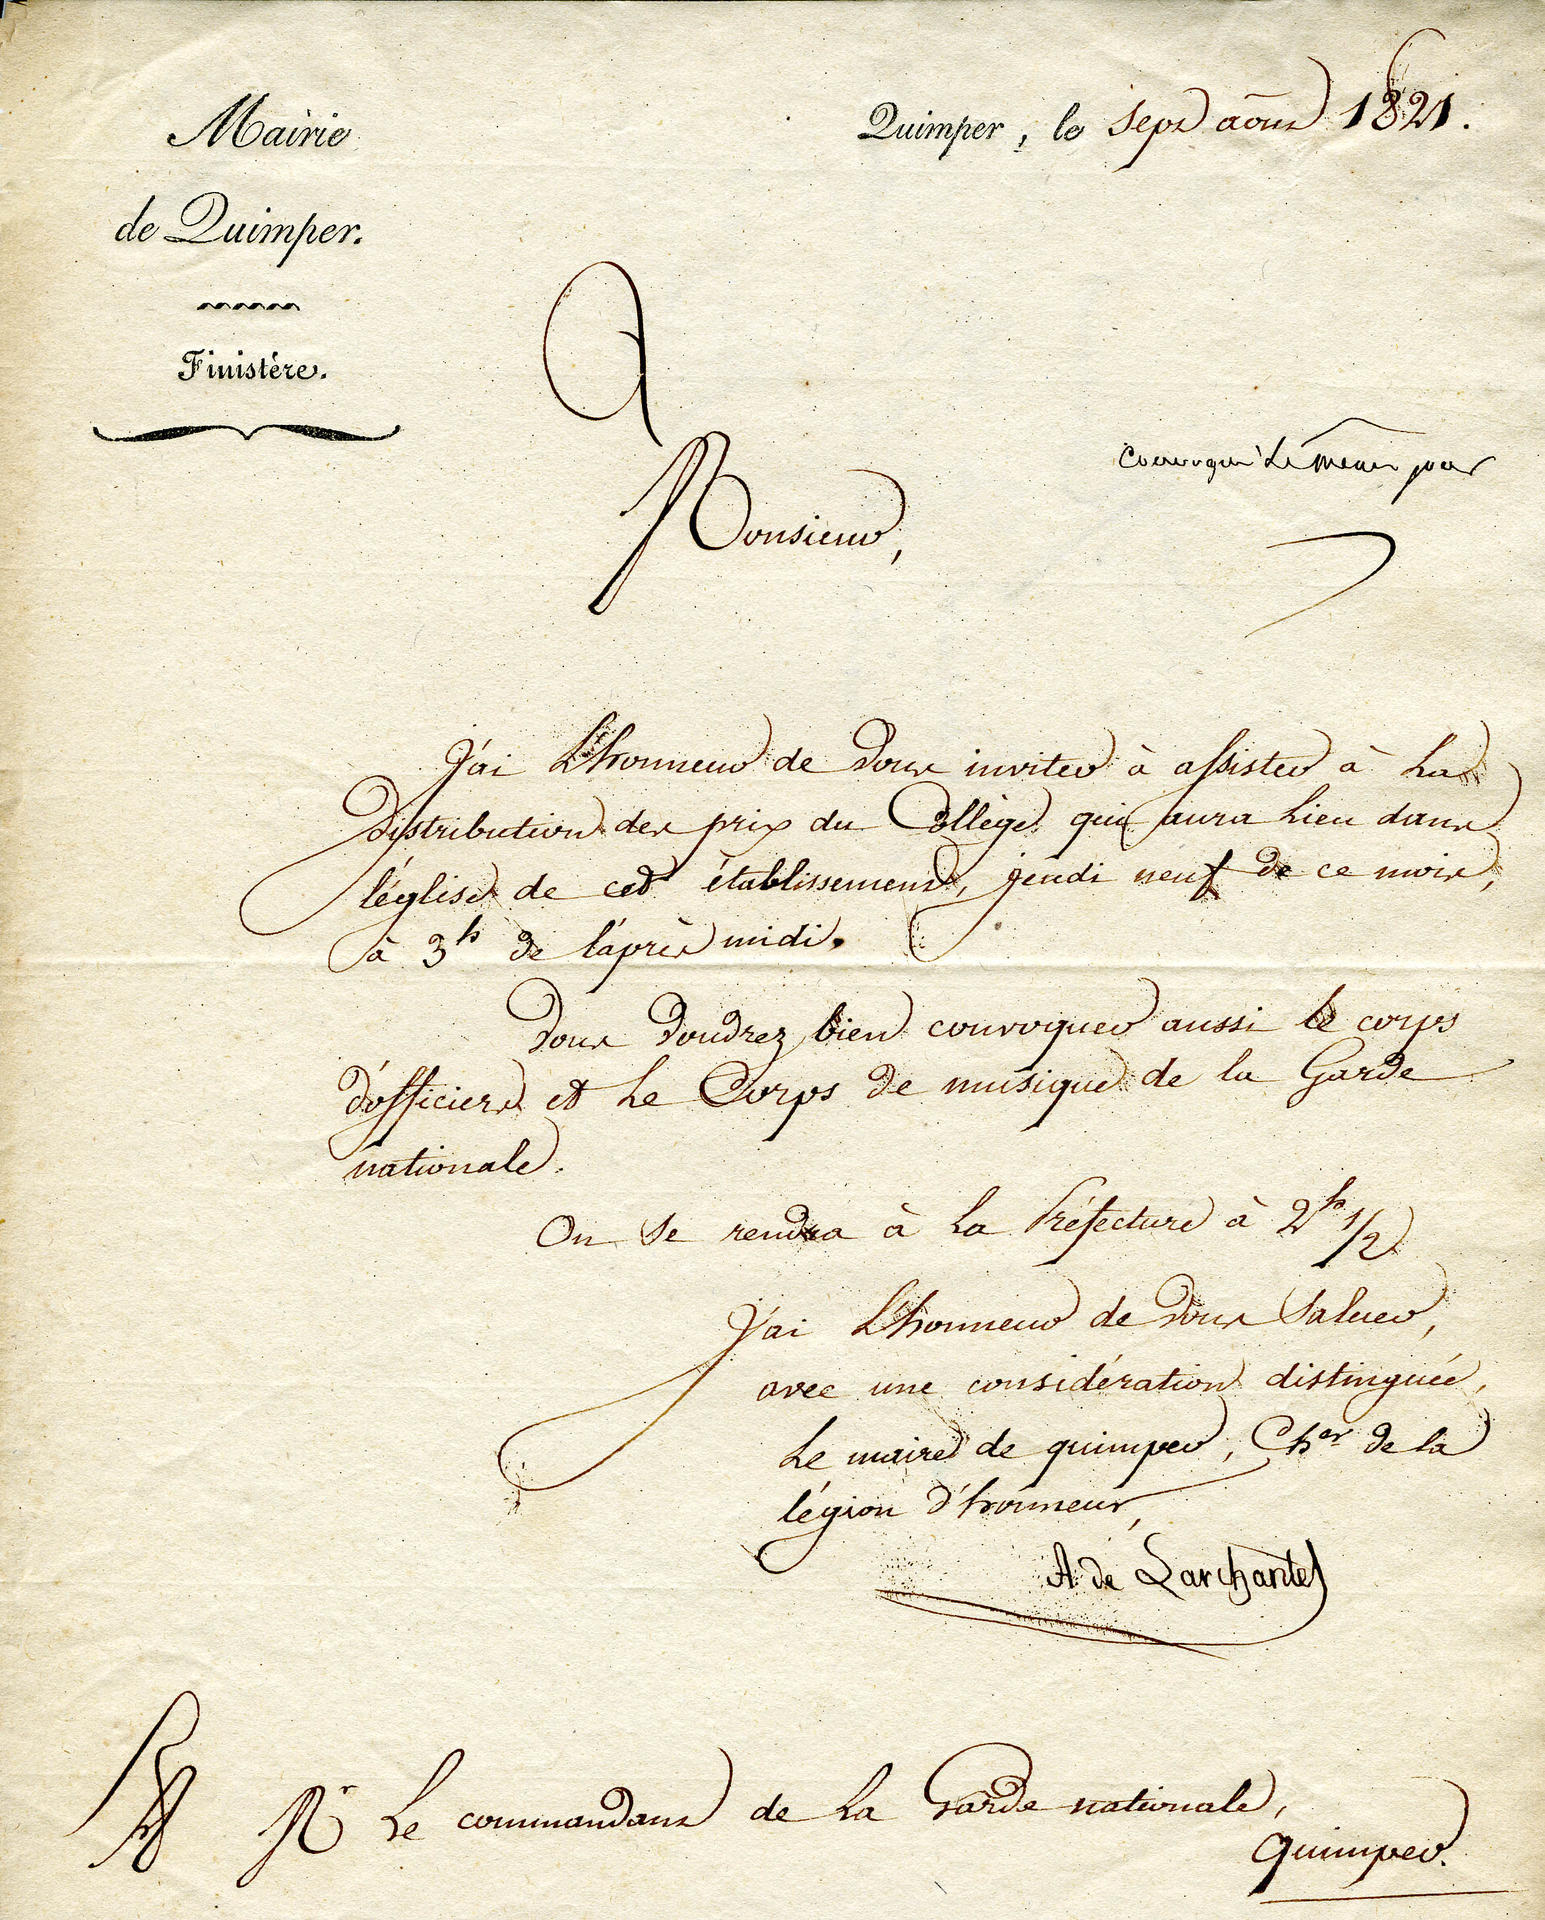 Mairie
de Quimper.
Finistère.
Quimper, le sept août 1821.
convoqué le même jour
Monsieur,
J'ai L'honneur de vous inviter à assister à La
distribution des prix du Collège qui aura Lieu dans
l'église de cet établissement, jeudi neuf de ce mois,
à 3h de l'après midi.
Vous voudrez bien convoquer aussi le corps
d'officiers et Le Corps de musique de la Garde
nationale.
On se rendra à La Préfecture à 2h 1/2
J'ai L'honneur de vous Saluer,
avec une considération distinguée,
Le maire de quimper, Cher de la
légion d'honneur,
A de Larchantel
Mr Le commandant de La Garde nationale,
quimper.